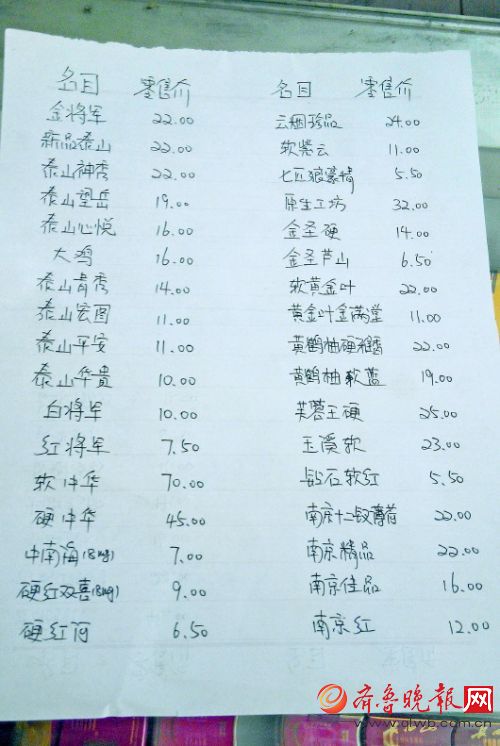 名目 零售价 名目 零售价
金将军 22.00 云烟珍品 24.00
新品泰山 22.00 软紫云 11.00
泰山神秀 22.00 七匹狼豪情 5.50
泰山望岳 19.00 原生工坊 32.00
泰山心悦 16.00 金圣硬 14.00
大鸡 16.00 金圣芦山 6.50
泰山青秀 14.00 软黄金叶 22.00
泰山宏图 11.00 黄金叶金满堂 11.00
泰山平安 11.00 黄鹤楼硬 22.00
泰山华贵 10.00 黄鹤楼软蓝 19.00
白将军 10.00 芙蓉王硬 25.00
红将军 7.50 玉溪软 23.00
软中华 70.00 钻石软红 5.50
硬中华 45.00 南京十二钗 22.00
中南海(8mg) 7.00 南京精品 22.00
硬红双喜(8mg) 9.00 南京佳品 16.00
硬红河 6.50 南京红 12.00
齐鲁晚报网
www.qlwb.com.cn